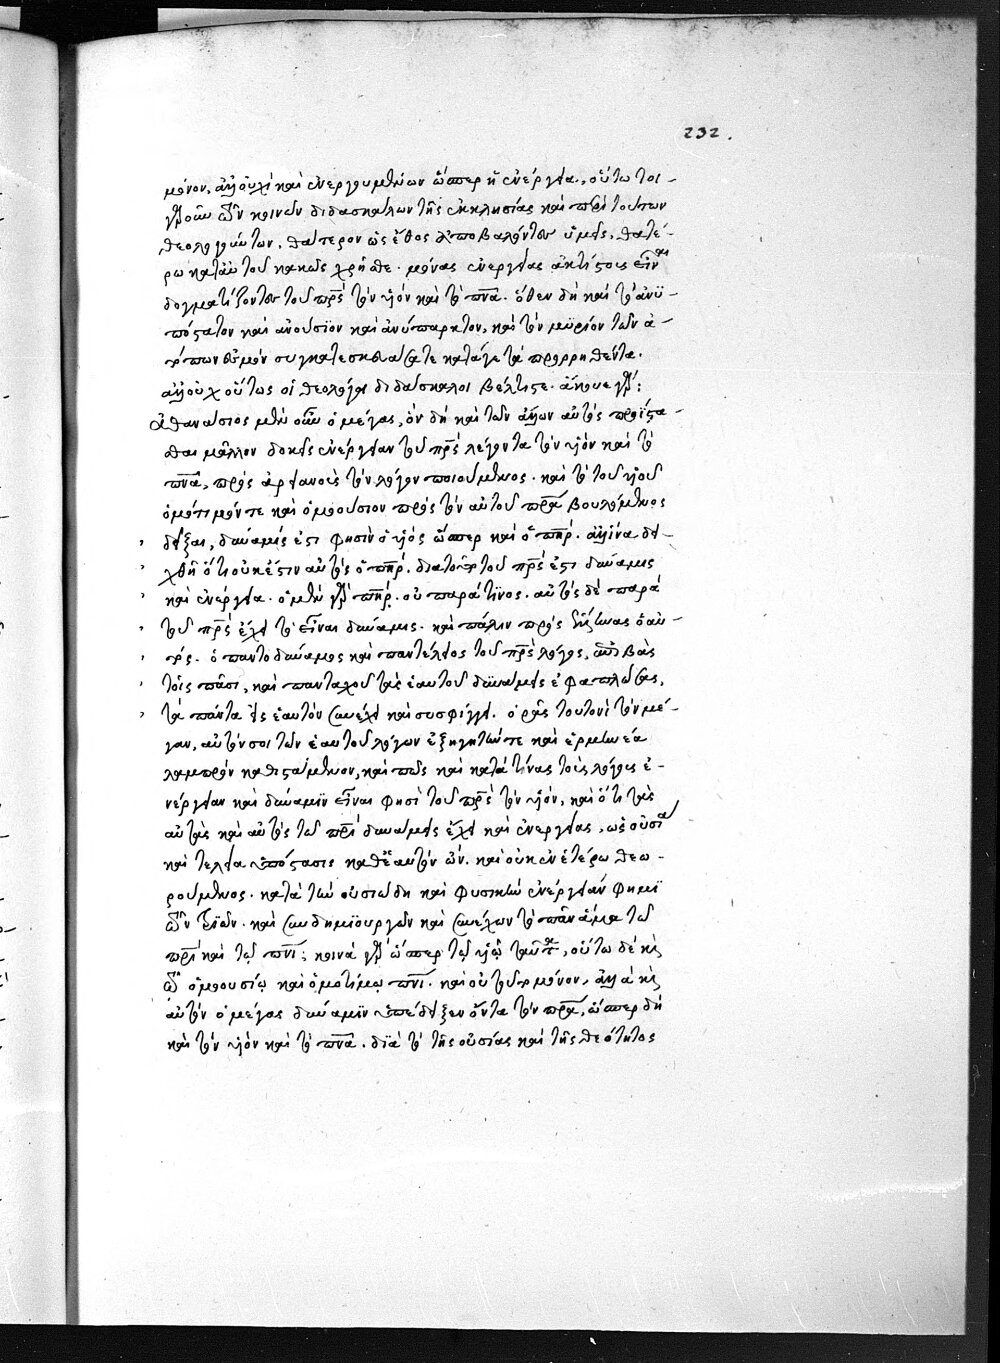 232.
μόνον, ἀλλ' οὐχὶ καὶ ἐνεργουμένων ὥσπερ ἡ ἐνέργεια, οὕτω τοι-
γαροῦν τῶν κοινῶν διδασκάλων τῆς ἐκκλησίας καὶ περὶ τούτων
θεολογούντων, θάτερον ὡς ἔθος ἀποβαλόντες ὑμεῖς, θατέ-
ρῳ κατὰ τοῦ κακῶς χρῆσθε. μόνας ἐνεργείας ἀκτίστους εἶναι
δογματίζοντες τοῦ πρς τὸν υἱὸν καὶ τὸ πνα. ὅθεν δὴ καὶ τὸ ἀνϋ-
πόστατον καὶ ἀνούσιον καὶ ἀνύπαρκτον, καὶ τὸν μυρίον τῶν ἀ-
τόπων ἐσμὸν συγκατεσκευάσατε κατά γε τὰ προρρηθέντα.
ἀλλ' οὐχ οὕτως οἱ θεολόγοι διδάσκαλοι βέλτιστε. ἄκουε γάρ:
Ἀθανάσιος μὲν οὖν ὁ μέγας, ὃν δὴ καὶ τῶν ἄλλων αὐτὸς προΐστα-
σθαι μᾶλλον δοκεῖς ἐνέργειαν τοῦ πρς λέγοντα τὸν υἱὸν καὶ τὸ
πνα, πρὸς ἀρειανοὺς τὸν λόγον ποιούμενος. καὶ τὸ τοῦ υἱοῦ
ὁμότιμόν τε καὶ ὁμοούσιον πρὸς τὸν αὐτοῦ πρα βουλόμενος
δεῖξαι, δύναμίς ἐστι φησὶν ὁ υἱὸς ὥσπερ καὶ ὁ πηρ. ἀλλ' ἵνα δει-
χθῇ ὅτι οὐκ ἔστιν αὐτὸς ὁ πηρ. διατοῦτο τοῦ πρς ἐστι δύναμις
καὶ ἐνέργεια. ὁ μὲν γὰρ πηρ. οὐ παρά τινος. αὐτὸς δὲ παρὰ
τοῦ πρς ἔχει τὸ εἶναι δύναμις. καὶ πάλιν πρὸς ἕλληνας ὁ αὐ-
τός. ὁ παντοδύναμος καὶ παντέλειος τοῦ πρς λόγος, ἐπιβὰς
τοῖς πᾶσι, καὶ πανταχοῦ τὰς ἑαυτοῦ δυνάμεις ἐφαπλώσας,
τὰ πάντα εἰς ἑαυτὸν συνέχει καὶ συσφίγγει. ὁρᾷς τουτονὶ τὸν μέ-
γαν, αὐτόν σοι τῶν ἑαυτοῦ λόγων ἐξηγητήν τε καὶ ἑρμηνέα
λαμπρὸν καθιστάμενον, καὶ πῶς καὶ κατὰ τίνας τοὺς λόγους ἐ-
νέργειαν καὶ δύναμιν εἶναι φησὶ τοῦ πρς τὸν υἱόν, καὶ ὅτι τὰς
αὐτὰς καὶ αὐτὸς τῷ πρὶ δυνάμεις ἔχει καὶ ἐνεργείας, ὡς οὐσία
καὶ τελεία ὑπόστασις καθ' ἑαυτὸν ὤν. καὶ οὐκ ἐν ἑτέρῳ θεω-
ρούμενος. κατὰ τὴν οὐσιώδη καὶ φυσικὴν ἐνέργειάν φημι
τῶν τριῶν. καὶ συνδημιουργῶν καὶ συνέχων τὸ πᾶν ἅμα τῷ
πρὶ καὶ τῷ πνι; κοινὰ γὰρ ὥσπερ τῷ υἱῷ ταῦτα, οὕτω δὲ κἀν
τῷ ὁμοουσίῳ καὶ ὁμοτίμῳ πνι. καὶ οὐ τοῦτο μόνον, ἀλλὰ καὶ
αὐτὸν ὁ μέγας δύναμιν ὑπέδειξεν ὄντα τὸν πρα, ὥσπερ δὴ
καὶ τὸν υἱὸν καὶ τὸ πνα. διὰ τὸ τῆς οὐσίας καὶ τῆς θεότητος